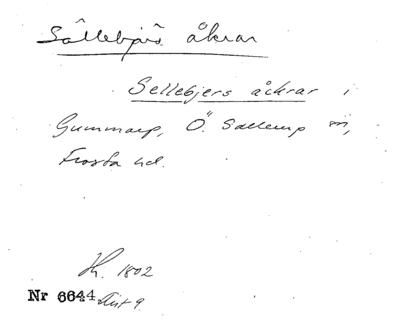 Sällebjärs åkrar
Sellebjers åckrar i
Gummarp, Ö. Sallerup sn,
Frosta hd.
H. 1802
Nr 6644 Akt 9.